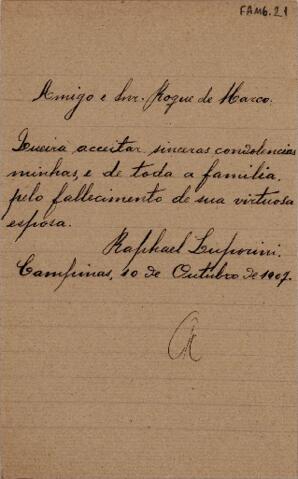 FAMB.21
Amigo e Snr. Roque de Marco.
Queira acceitar sinceras condolencias
minhas, e de toda a familia,
pelo fallecimento de sua virtuosa
esposa.
Raphael Luporini.
Campinas, 10 de Outubro de 1907.